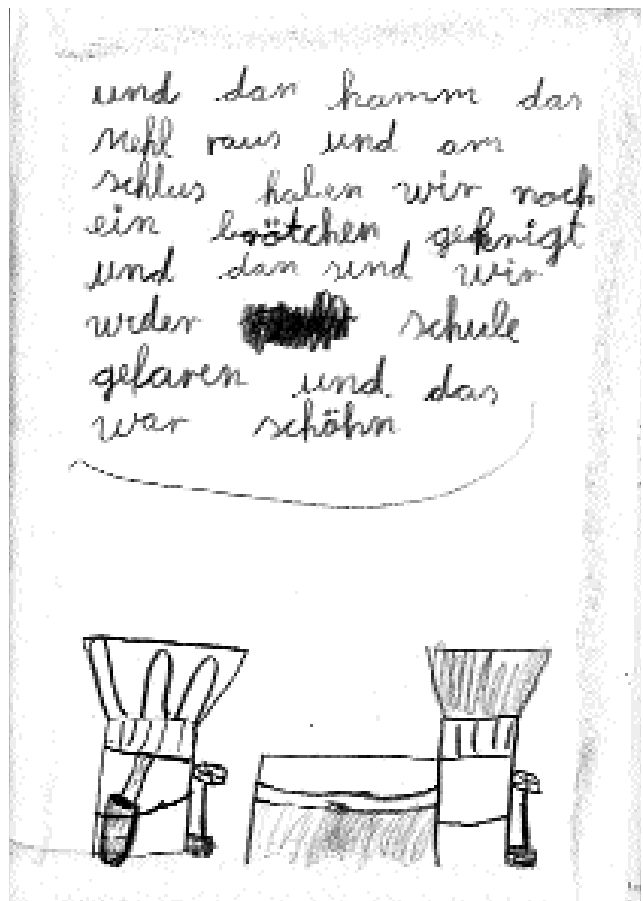 und dan kamm das
Mehl raus und am
schlus haben wir noch
ein brötchen gekrigt
und dan sind wir
wider schule
gefaren und das
war schöhn